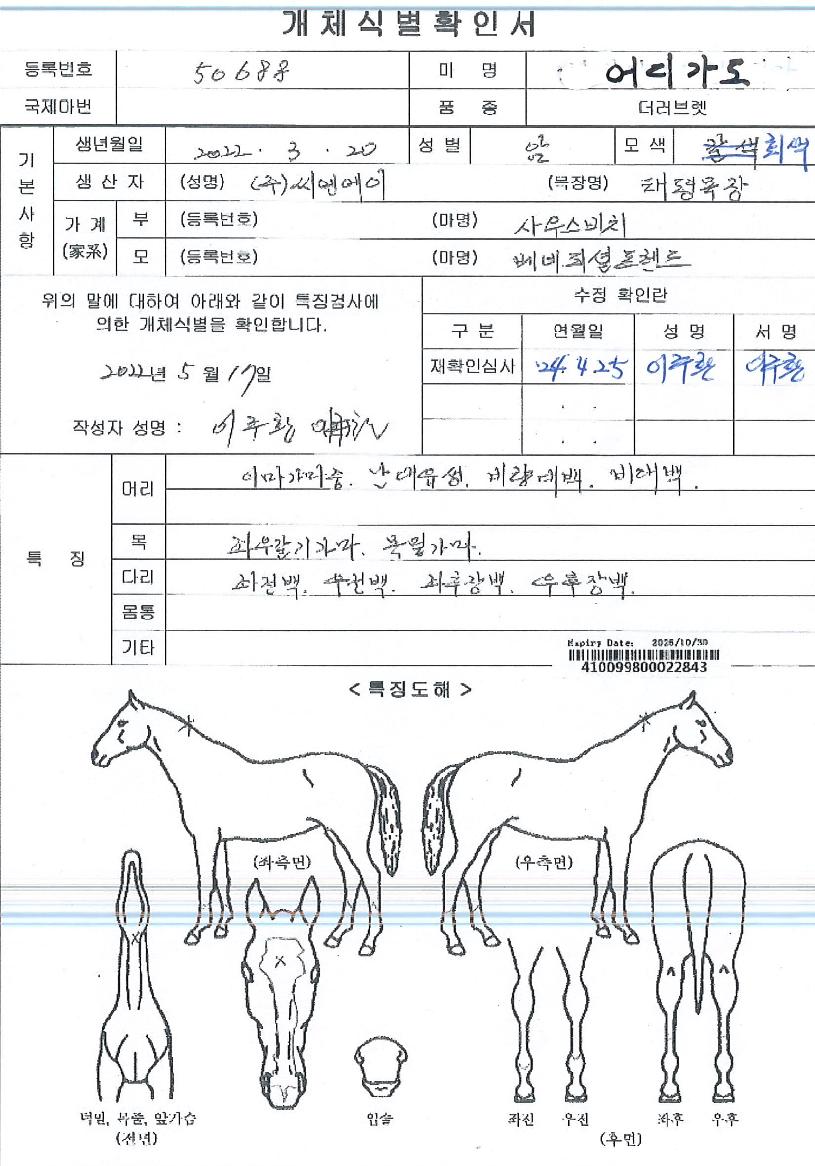 개체식별확인서
등록번호 50688 마 명 어디가도
국제마번 품 종 더러브렛
기본사항
생년월일 2022. 3. 20 성별 암 모색 갈색 회색
생산자 (성명) (주)씨엔에이 (목장명) 태평목장
가계 (家系) 부 (등록번호) (마명) 사우스비치
모 (등록번호) (마명) 베네피셜프렌드
위의 말에 대하여 아래와 같이 특징검사에
의한 개체식별을 확인합니다.
2022년 5월 17일
작성자 성명 : 이주환
수정 확인란
구분 연월일 성명 서명
재확인심사 '24. 4. 25 이주환 이주환
특 징
머리 이마가마중. 난대유성. 비량대백. 비대백.
목 좌우갈기가마. 목밑가마.
다리 좌전백. 우전백. 좌후장백. 우후장백.
몸통
기타
Expiry Date: 2026/10/30
410099800022843
< 특징도해 >
(좌측면) (우측면)
턱밑, 목줄, 앞가슴
(전면)
입술
좌전 우전 좌후 우후
(후면)